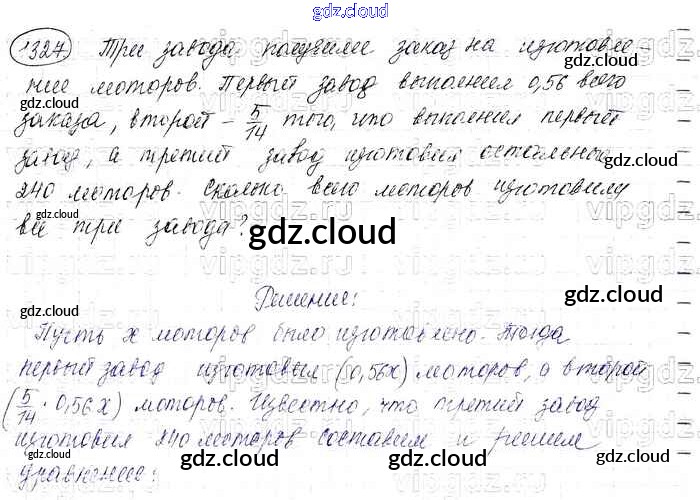 gdz.cloud
1327) Три завода получили заказ на изготовле-
ние моторов. Первый завод выполнил 0,56 всего
gdz.cloud
gdz.cloud
заказа, второй – 5/14 того, что выполнил первый
завод, а третий завод изготовил остальные
240 моторов. Сколько всего моторов изготовили
все три завода?
gdz.cloud
gdz.cloud
gdz.cloud
Решение:
Пусть x моторов было изготовлено. Тогда
первый завод изготовил (0,56x) моторов, а второй
(5/14 · 0,56x) моторов. Известно, что третий завод
изготовил 240 моторов составим и решим
уравнение:
gdz.cloud
gdz.cloud
gdz.cloud
gdz.cloud
gdz.cloud